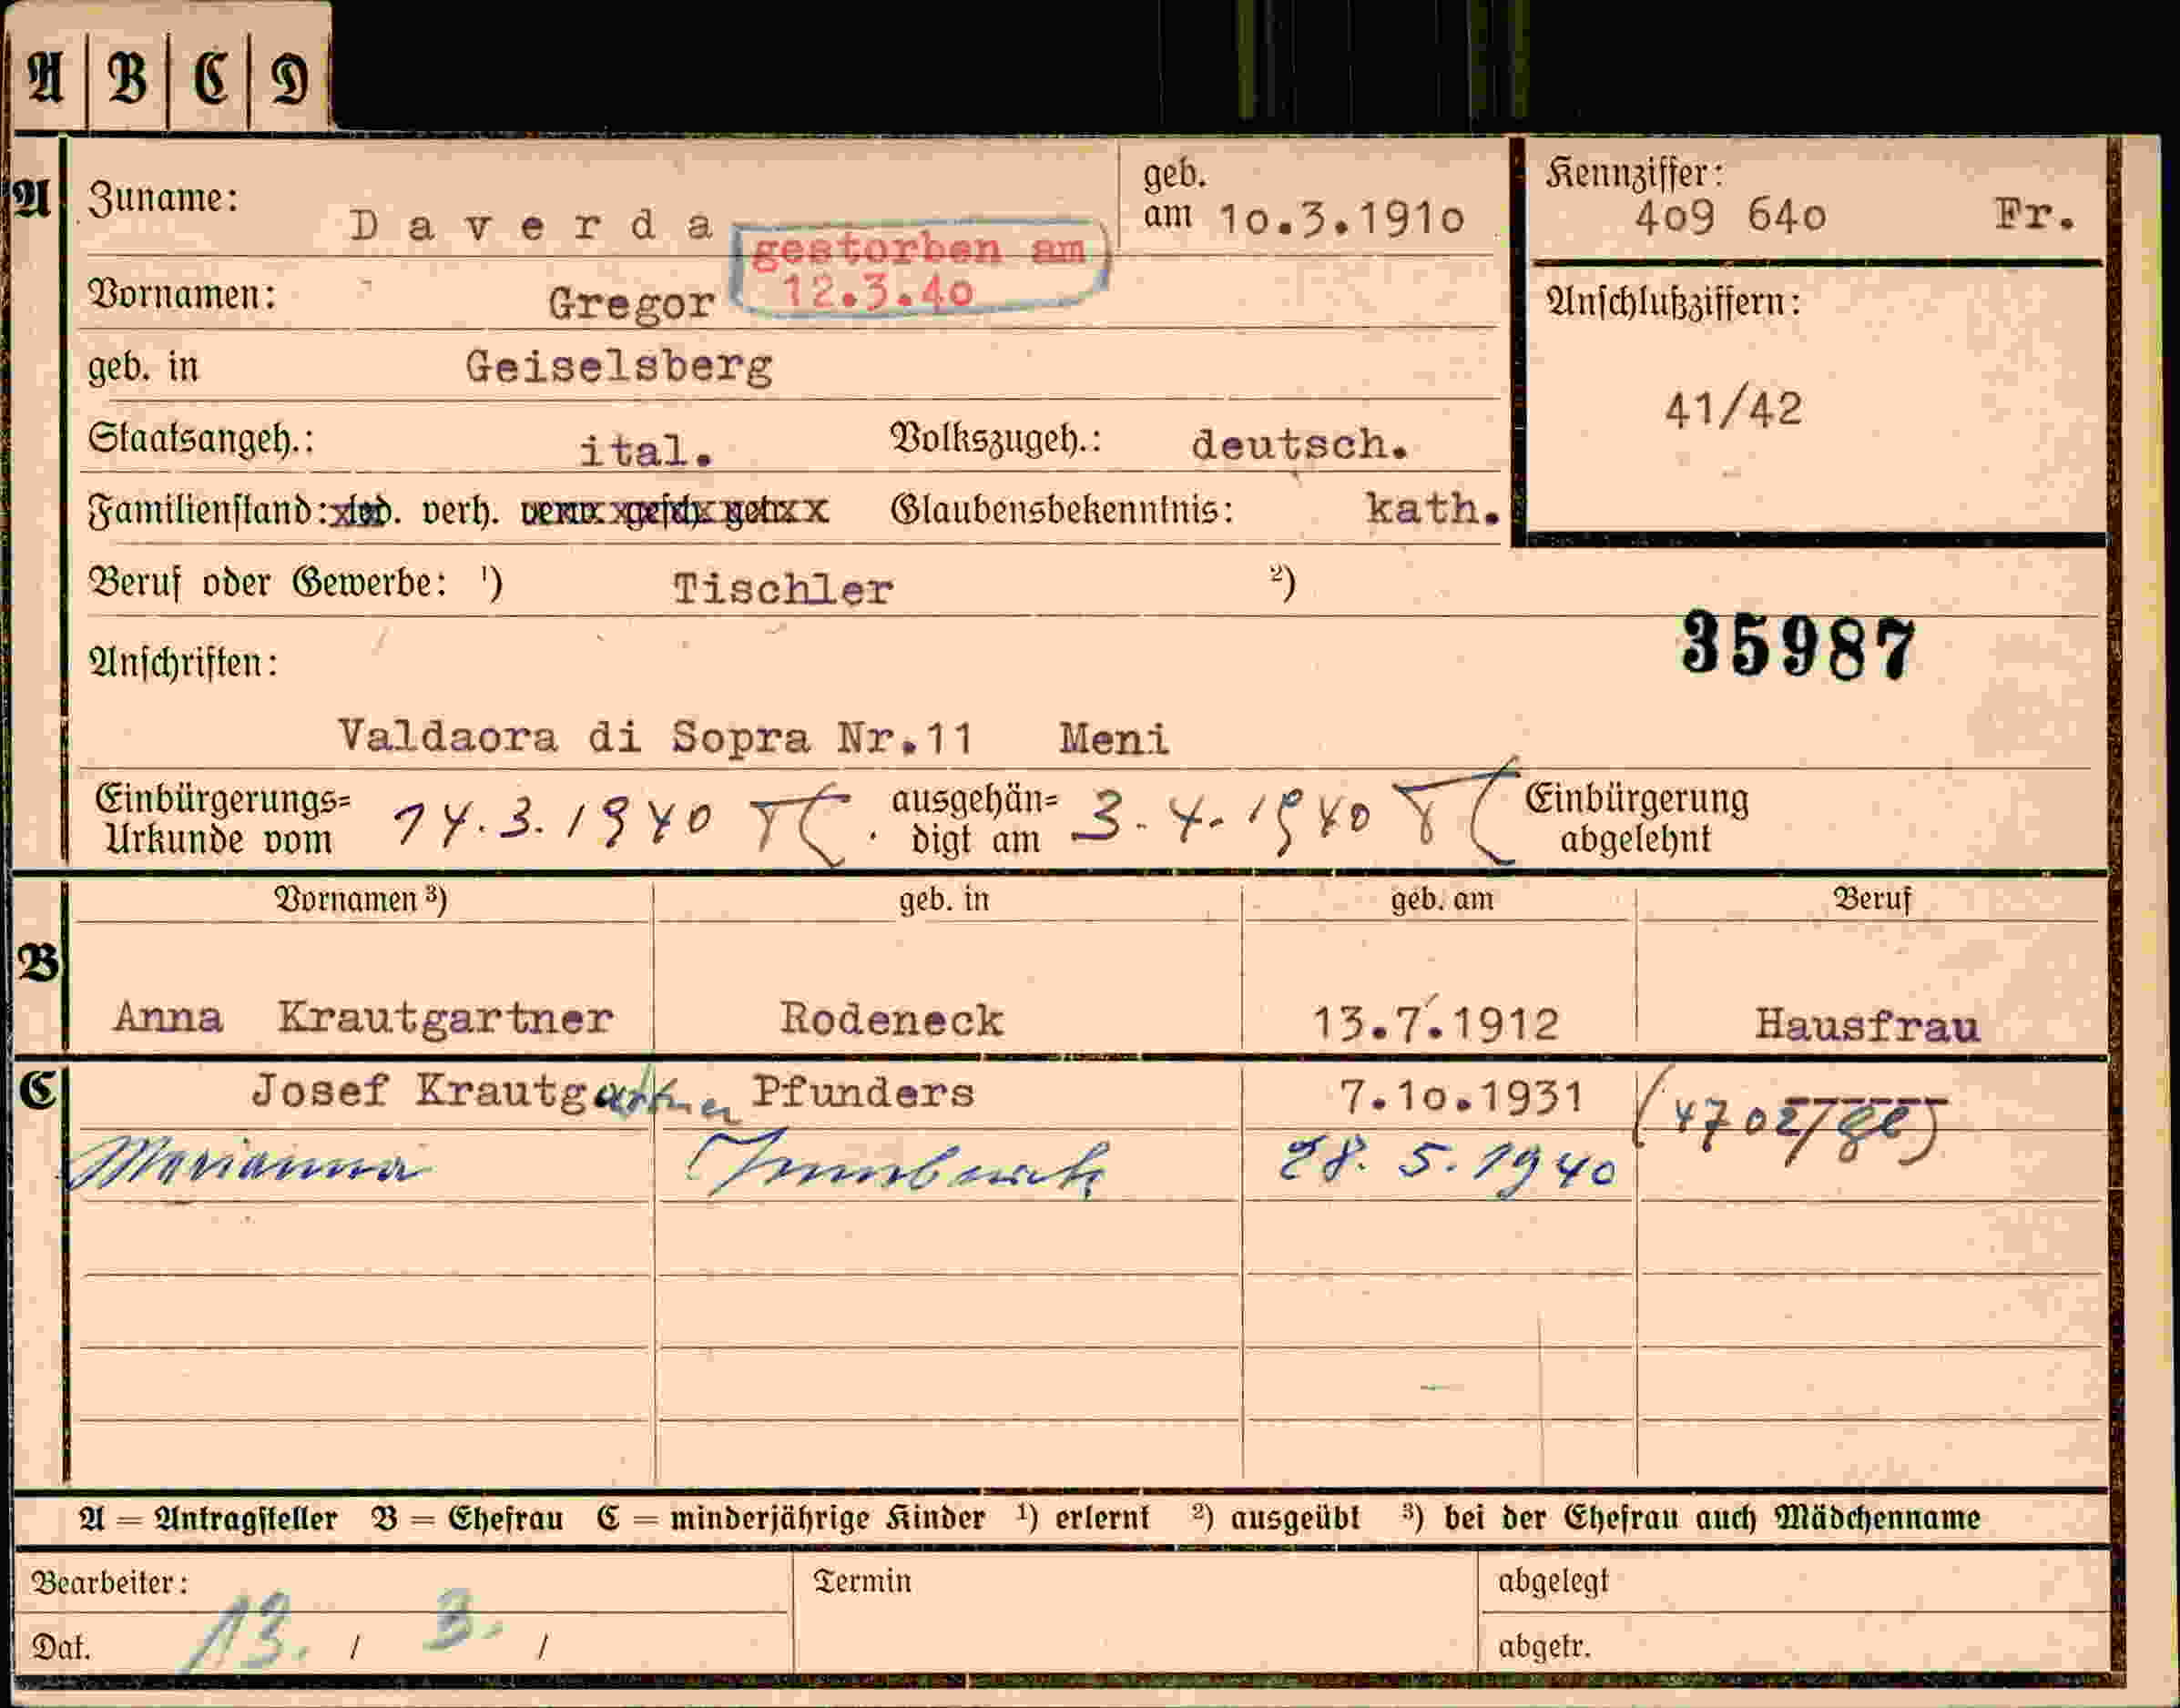 A | B | C | D
A
Zuname: Daverda
geb. am 10.3.1910
Kennziffer: 409 640 Fr.
gestorben am
12.3.40
Vornamen: Gregor
Anschlußziffern:
geb. in Geiselsberg
41/42
Staatsangeh.: ital. Volkszugeh.: deutsch.
Familienstand: led. verh. verw. gesch. getr. Glaubensbekenntnis: kath.
Beruf oder Gewerbe: ¹) Tischler ²)
35987
Anschriften:
Valdaora di Sopra Nr.11 Meni
Einbürgerungs=
Urkunde vom 14.3.1940
ausgehän=
digt am 3.4.1940
Einbürgerung
abgelehnt
Vornamen ³) geb. in geb. am Beruf
B
Anna Krautgartner Rodeneck 13.7.1912 Hausfrau
C
Josef Krautgartner Pfunders 7.10.1931
Marianna Innsbruck 28.5.1940
A = Antragsteller B = Ehefrau C = minderjährige Kinder ¹) erlernt ²) ausgeübt ³) bei der Ehefrau auch Mädchenname
Bearbeiter: Termin abgelegt
Dat. 13. / 3. / abgetr.